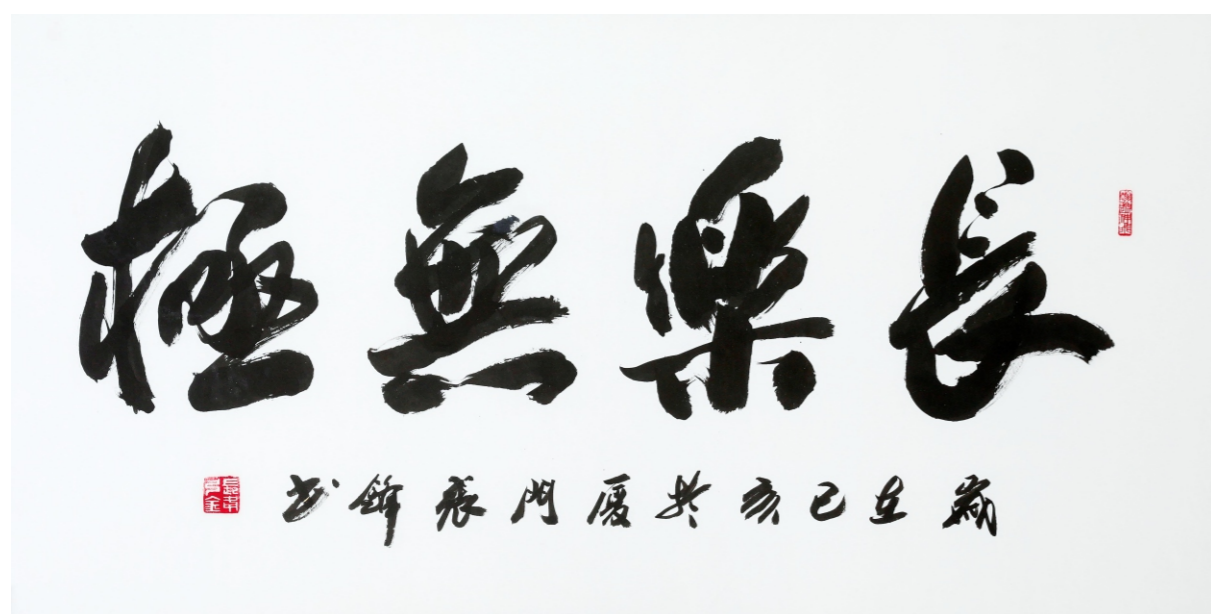 長樂無極
歲在己亥於厦門張鋒書